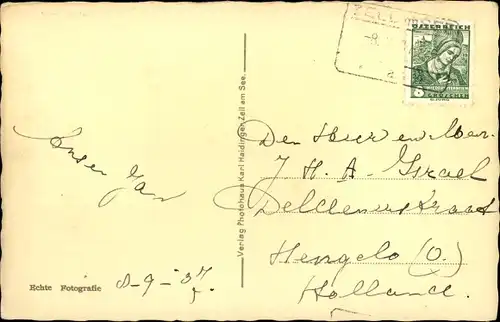 ZELL am SEE
-8.
a
ÖSTERREICH
6
GROSCHEN
Verlag Photohaus Karl Haidinger, Zell am See.
Den Heer en Mevr.
J. H. A. Israel
Deldenerstraat
Hengelo (O.)
Holland.
Echte Fotografie
8-9-'37.